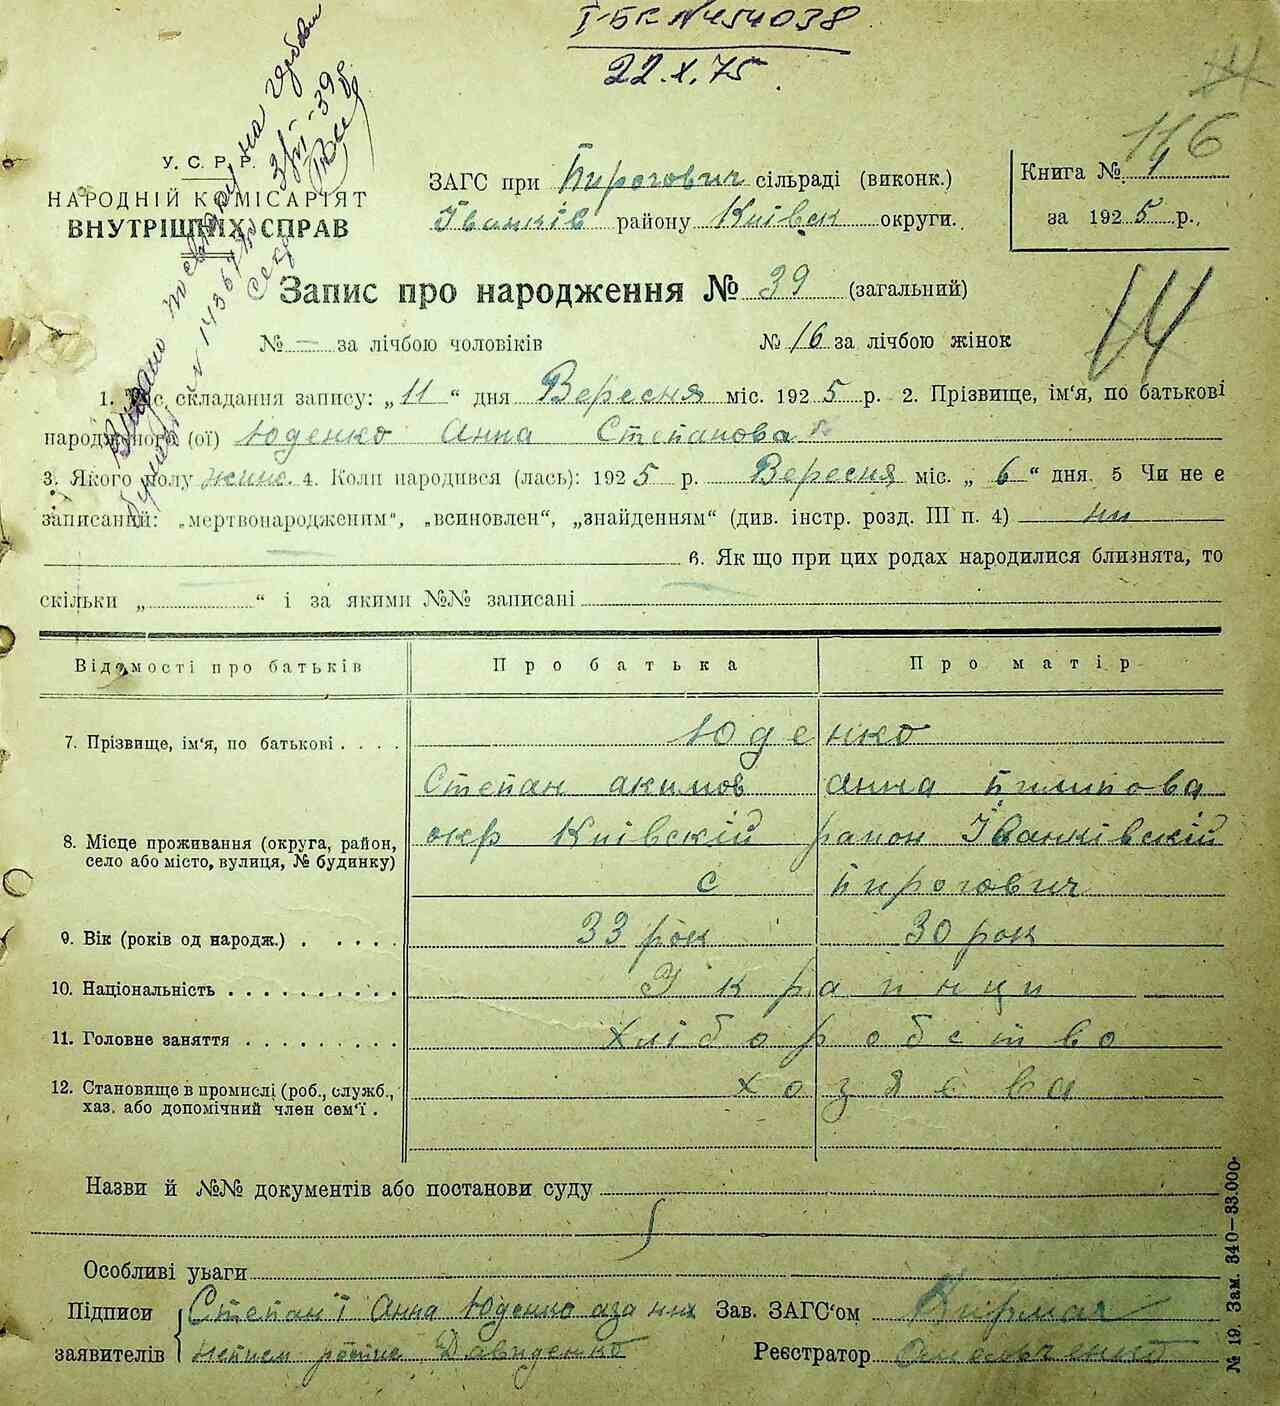 І-БК №454038
22.X.75
116
У. С. Р. Р.
НАРОДНІЙ КОМІСАРІЯТ
ВНУТРІШНІХ СПРАВ
Видано на
3/VI-39 р.
ЗАГС при Пирогович сільраді (виконк.)
Іванків району Київск округи.
Книга № 1
за 1925 р.
Запис про народження № 39 (загальний)
№ — за лічбою чоловіків № 16 за лічбою жінок
14
1. Час складання запису: „11“ дня Вересня міс. 1925 р. 2. Прізвище, ім‘я, по батькові
народженого (ої) Юденко Анна Степанова
3. Якого полу жіно. 4. Коли народився (лась): 1925 р. Вересня міс. „6“ дня. 5 Чи не є
записаний: „мертвонародженим“, „всиновлен“, „знайденням“ (див. інстр. розд. III п. 4) ни
6. Як що при цих родах народилися близнята, то
скільки „ “ і за якими №№ записані
Відомості про батьків Про батька Про матір
7. Прізвище, ім‘я, по батькові . . . . Юденко
Степан акимов анна пилипова
8. Місце проживання (округа, район, село або місто, вулиця, № будинку) окр Київскій раион Іванківскій
с пирогович
9. Вік (років од народж.) . . . . . 33 рок 30 рок
10. Національність . . . . . . . . . . Украинци
11. Головне заняття . . . . . . . . . Хлібороробство
12. Становище в промислі (роб., служб., хаз. або допомічний член сем‘ї . хозяева
Назви й №№ документів або постанови суду
Особливі уваги
Підписи Степан і Анна Юденко аза них Зав. ЗАГС‘ом Кирмач
заявителів Давиденко Реєстратор Омельченко
№ 19. Зам. 340—33.000.